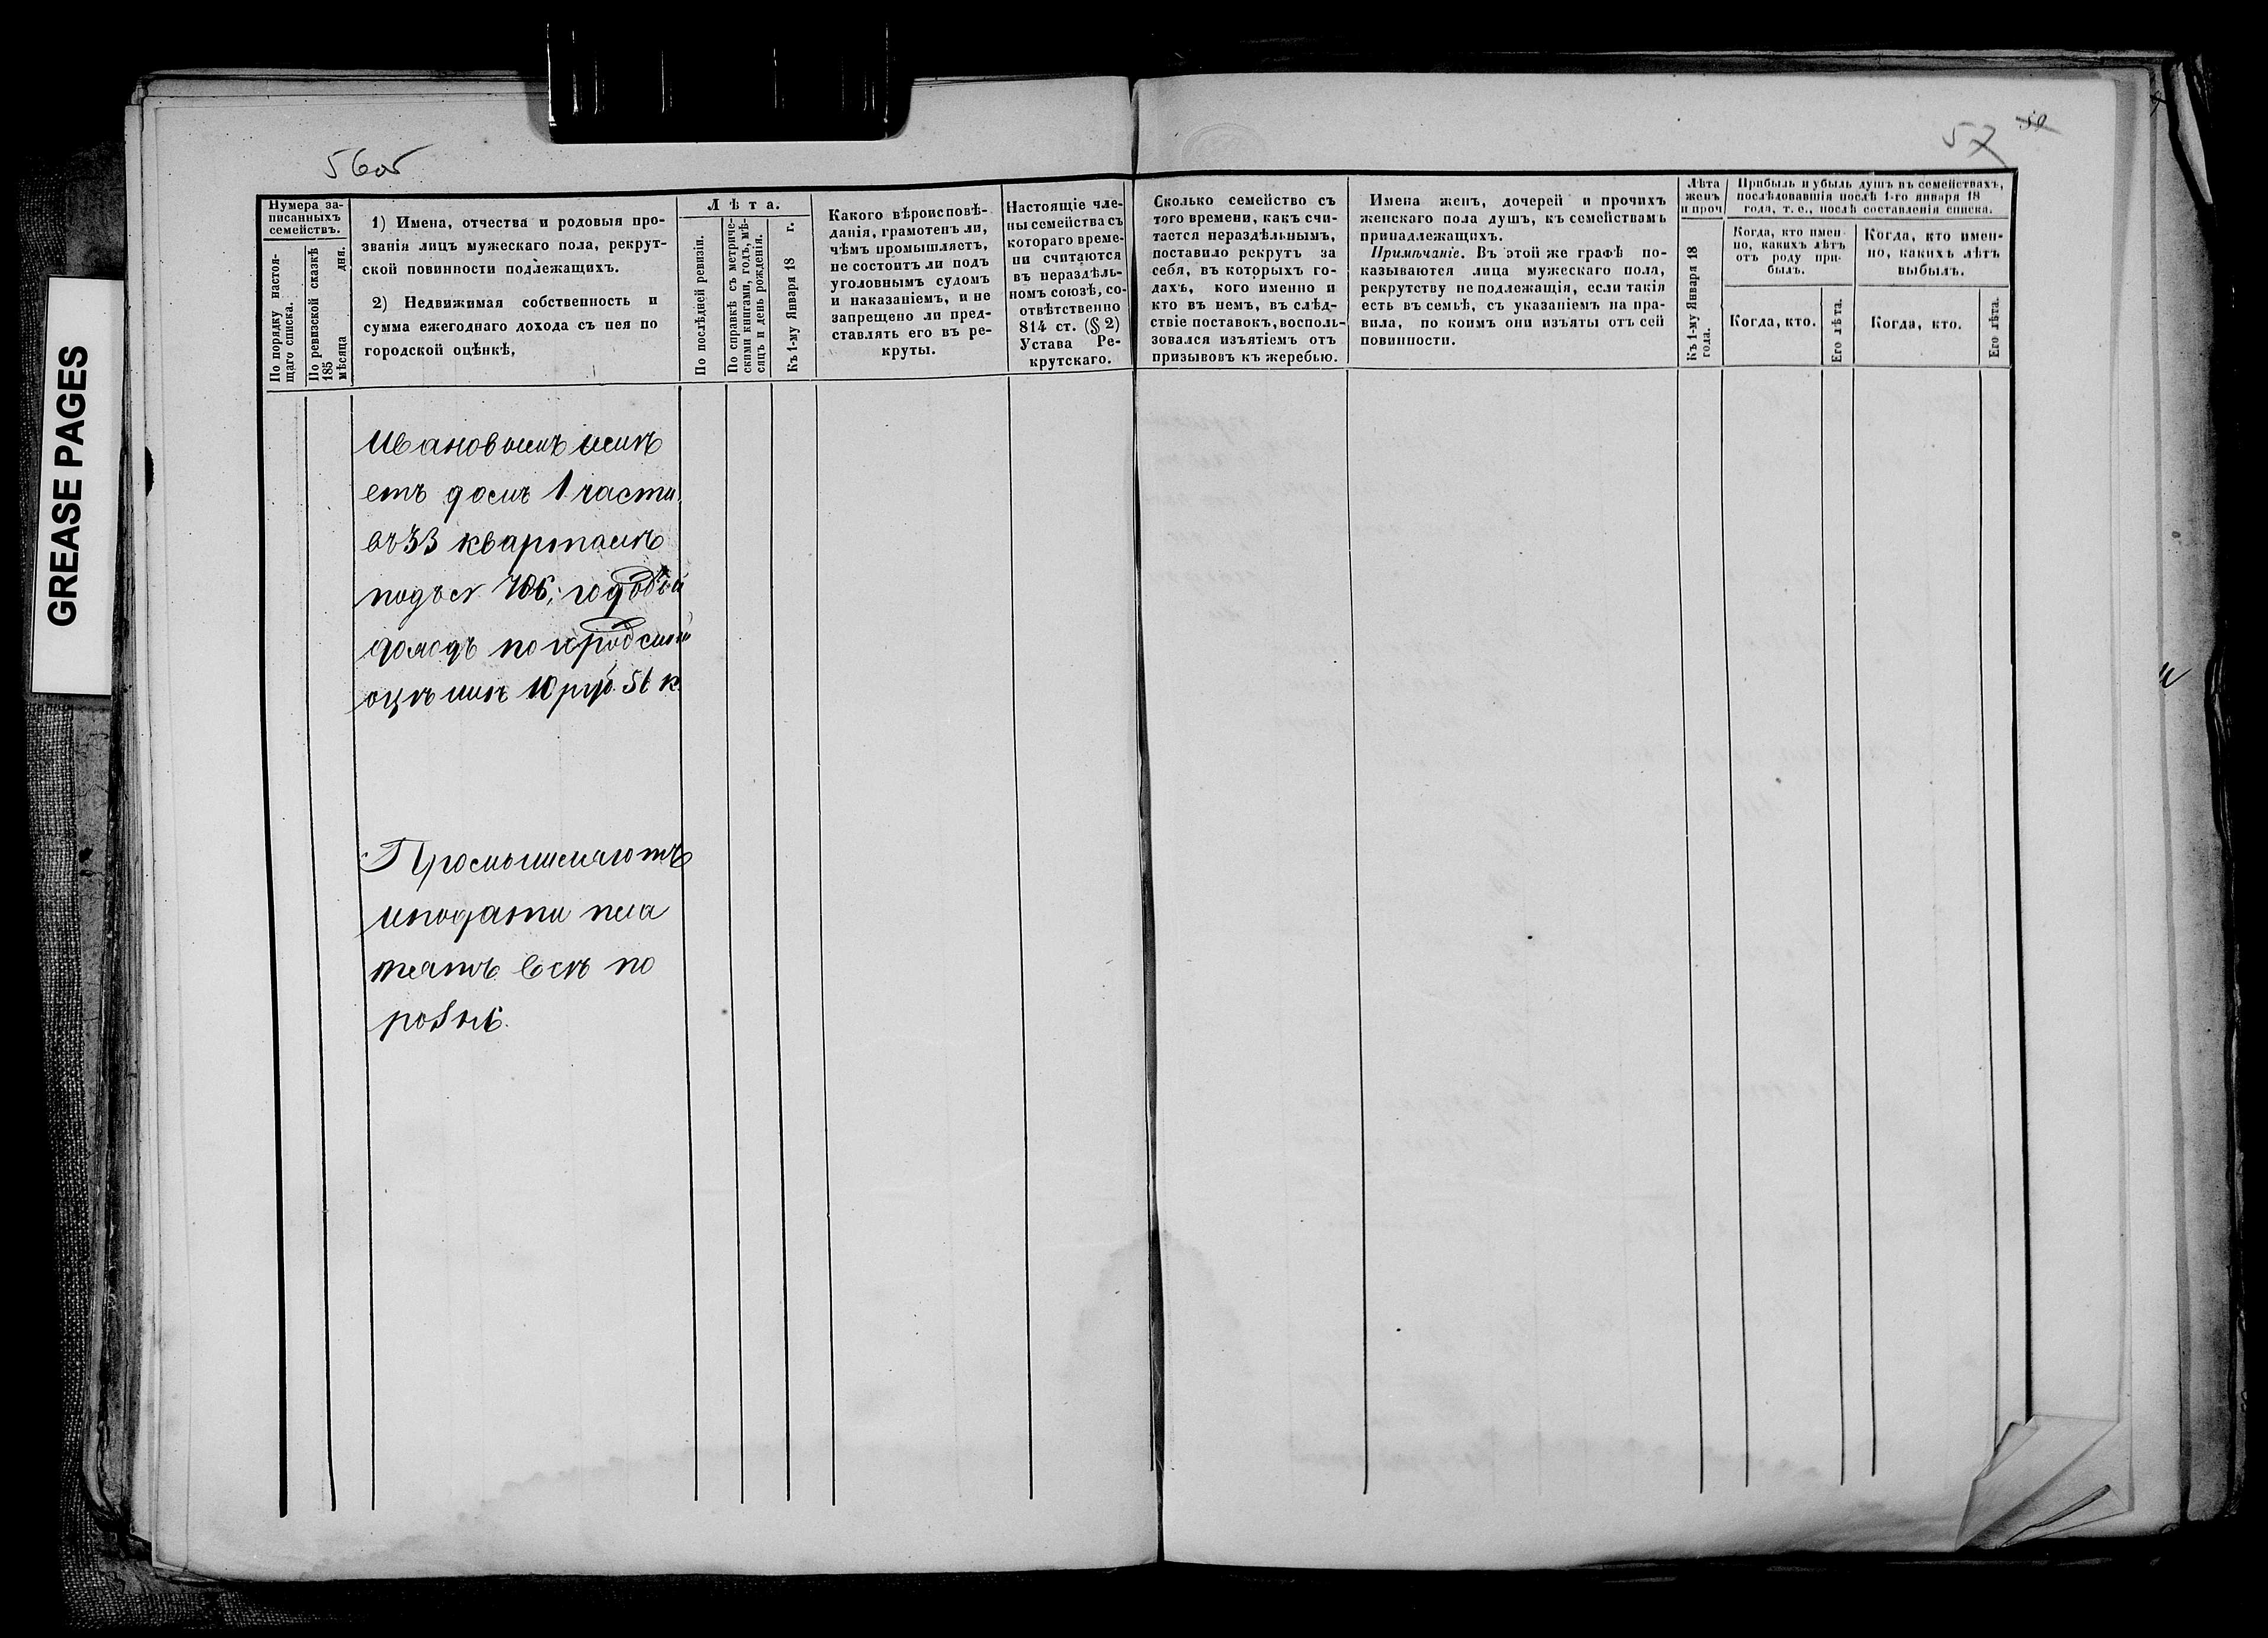 GREASE PAGES
56об
57
50
Нумера за-
писанныхъ
семействъ.
По порядку настоя-
щаго списка.
По ревизской сказкѣ
185
мѣсяца дня.
1) Имена, отчества и родовыя про-
званія лицъ мужескаго пола, рекрут-
ской повинности подлежащихъ.
2) Недвижимая собственность и
сумма ежегоднаго дохода съ нея по
городской оцѣнкѣ,
Лѣта.
По послѣдней ревизіи.
По справкѣ съ метриче-
скими книгами, годъ, мѣ-
сяцъ и день рожденія.
Къ 1-му Января 18 г.
Какого вѣроисповѣ-
данія, грамотенъ ли,
чѣмъ промышляетъ,
не состоитъ ли подъ
уголовнымъ судомъ
и наказаніемъ, и не
запрещено ли пред-
ставлять его въ ре-
круты.
Настоящіе чле-
ны семейства съ
котораго време-
ни считаются
въ нераздѣль-
номъ союзѣ, со-
отвѣтственно
814 ст. (§ 2)
Устава Ре-
крутскаго.
Сколько семейство съ
того времени, какъ счи-
тается нераздѣльнымъ,
поставило рекрутъ за
себя, въ которыхъ го-
дахъ, кого именно и
кто въ немъ, въ слѣд-
ствіе поставокъ, восполь-
зовался изъятіемъ отъ
призывовъ къ жеребью.
Имена женъ, дочерей и прочихъ
женскаго пола душъ, къ семействамъ
принадлежащихъ.
Примѣчаніе. Въ этой же графѣ по-
казываются лица мужескаго пола,
рекрутству не подлежащія, если такія
есть въ семьѣ, съ указаніемъ на пра-
вила, по коимъ они изъяты отъ сей
повинности.
Лѣта
женъ
и проч
Къ 1-му Января 18
года.
Прибыль и убыль душъ въ семействахъ,
послѣдовавшія послѣ 1-го января 18
года, т. е., послѣ составленія списка.
Когда, кто имен-
но, какихъ лѣтъ
отъ роду при-
былъ.
Когда, кто имен-
но, какихъ лѣтъ
выбылъ.
Когда, кто.
Его лѣта.
Когда, кто.
Его лѣта.
Ивановымъ имѣ
етъ домъ 1 части
въ 33 кварталѣ
подъ № 706; годовый
доходъ по городской
оцѣнкѣ 10 руб. 51 к.
Промышляютъ
и подати пла
тятъ всѣ по
ровнѣ.